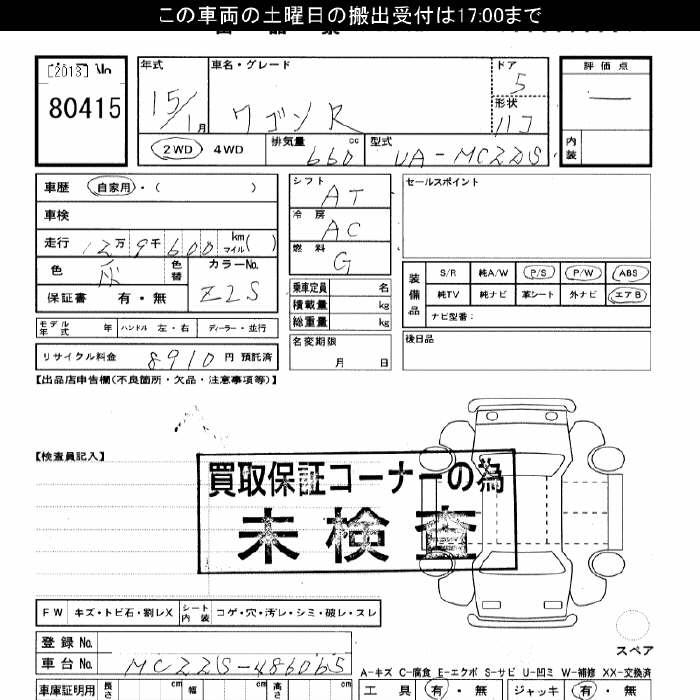 この車両の土曜日の搬出受付は17:00まで
[2013] No
80415
年式 車名・グレード ドア 評価点
15/1月 ワゴンR 5 ー
形状 ハコ
② 2WD 4WD 排気量 660 cc 型式 UA-MCZZS 内装
車歴 自家用・( ) シフト AT セールスポイント
車検 冷房 AC
走行 12万9千600 km マイル ( ) 燃料 G
色 灰 色替 カラーNo. Z2S
保証書 有・無
乗車定員 名
積載量 kg
総重量 kg
装備品 S/R 純A/W P/S P/W ABS
純TV 純ナビ 革シート 外ナビ エアB
ナビ型番:
モデル年式 年 ハンドル 左・右 ディーラー・並行
名変期限 月 日
後日品
リサイクル料金 8910 円 預託済
【出品店申告欄(不良箇所・欠品・注意事項等)】
【検査員記入】
買取保証コーナーの為
未検査
FW キズ・トビ石・割レX シート内装 コゲ・穴・汚レ・シミ・破レ・スレ
スペア
登録No.
車台No. MCZZS-486065
A-キズ C-腐食 E-エクボ S-サビ U-凹ミ W-補修 XX-交換済
車庫証明用 長さ cm 幅 cm 高さ cm 工具 有・無 ジャッキ 有・無